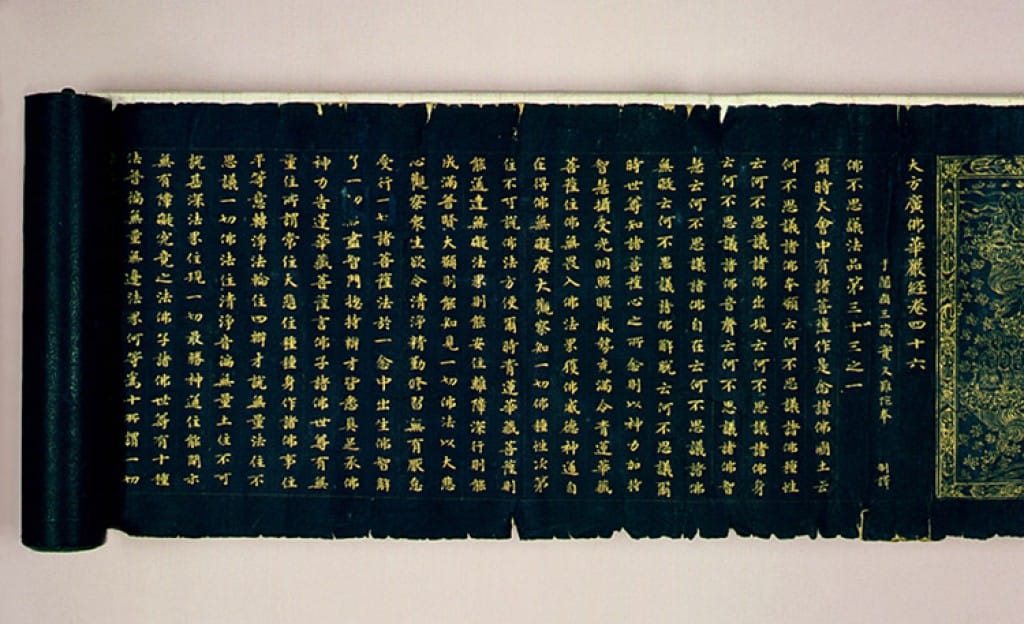 大方廣佛華嚴經卷四十六
于闐國三藏實叉難陀奉 制譯
佛不思議法品第三十三之一
爾時大會中有諸菩薩作是念諸佛國土云
何不思議諸佛本願云何不思議諸佛種性
云何不思議諸佛出現云何不思議諸佛身
云何不思議諸佛音聲云何不思議諸佛智
慧云何不思議諸佛自在云何不思議諸佛
無礙云何不思議諸佛解脫云何不思議爾
時世尊知諸菩薩心之所念則以神力加持
智慧攝受光明照曜威勢充滿令青蓮華藏
菩薩住佛無畏入佛法界獲佛威德神通自
在得佛無礙廣大觀察知一切佛種性次第
住不可說佛法方便爾時青蓮華藏菩薩則
能通達無礙法界則能安住離障深行則能
成滿普賢大願則能知見一切佛法以大悲
心觀察眾生欲令清淨精勤修習無有厭怠
受行一切諸菩薩法於一念中出生佛智解
了一切無盡智門揔持辯才皆悉具足承佛
神力告蓮華藏菩薩言佛子諸佛世尊有無
量住所謂常住大悲住種種身作諸佛事住
平等意轉淨法輪住四辯才說無量法住不
思議一切佛法住清淨音遍無量土住不可
說甚深法界住現一切最勝神通住能開示
無有障礙究竟之法佛子諸佛世尊有十種
法普遍無量無邊法界何等為十所謂一切